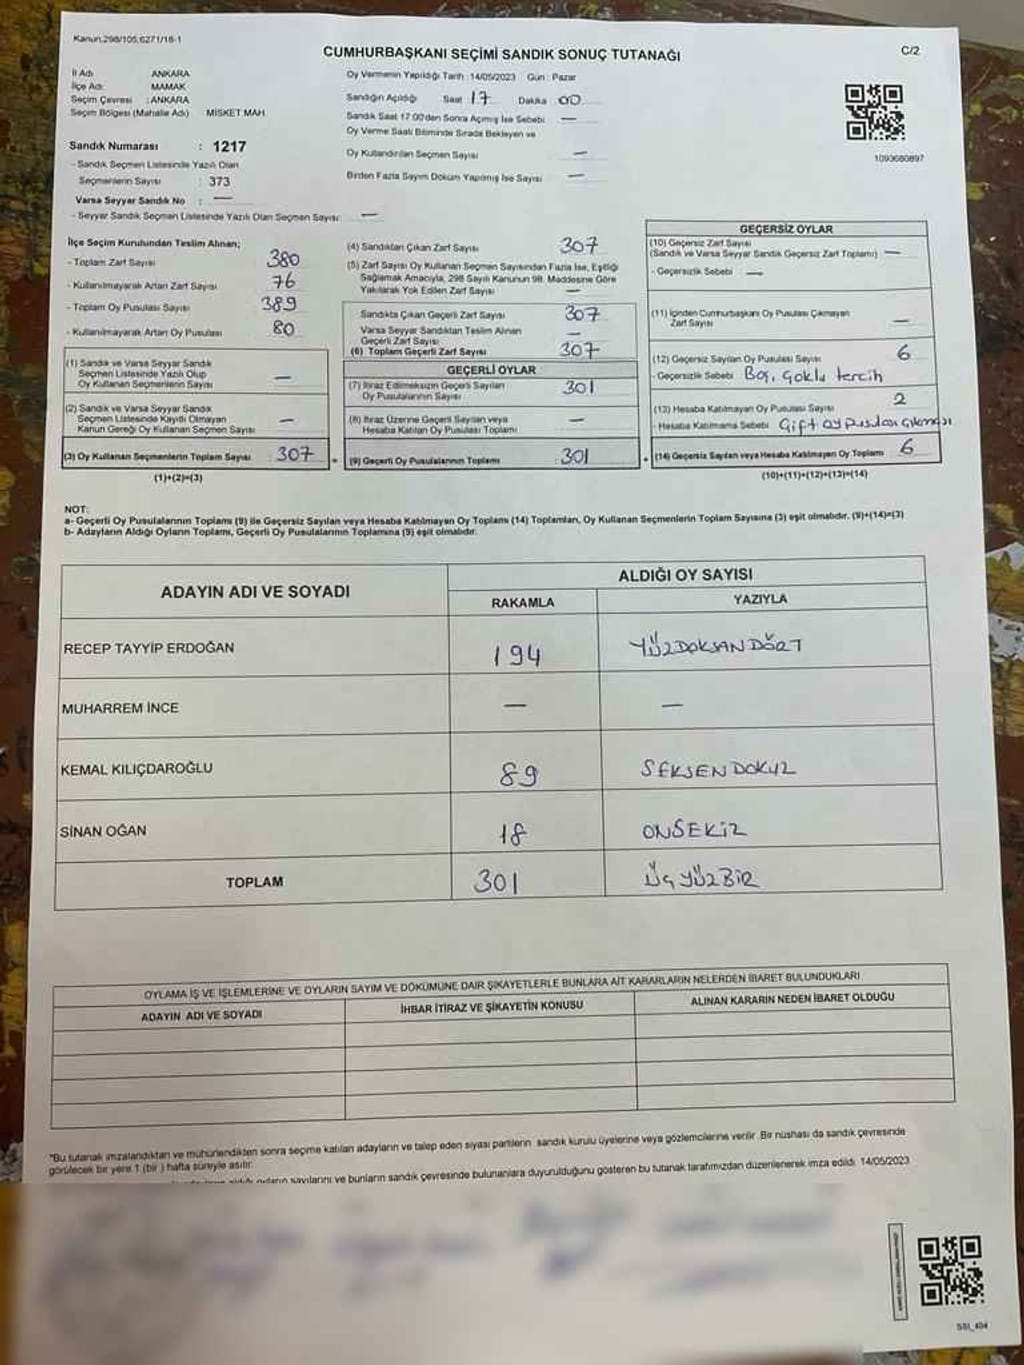 Kanun:298/105;6271/18-1
CUMHURBAŞKANI SEÇİMİ SANDIK SONUÇ TUTANAĞI
C/2
İl Adı ANKARA
İlçe Adı: MAMAK
Seçim Çevresi : ANKARA
Seçim Bölgesi (Mahalle Adı) MİSKET MAH.
Oy Vermenin Yapıldığı Tarih :14/05/2023 Gün : Pazar
Sandığın Açıldığı Saat 17 Dakika 00
Sandık Saat 17:00'den Sonra Açılmış İse Sebebi —
Oy Verme Saati Bitiminde Sırada Bekleyen ve
Oy Kullandırılan Seçmen Sayısı —
Birden Fazla Sayım Döküm Yapılmış İse Sayısı —
1093680897
Sandık Numarası : 1217
- Sandık Seçmen Listesinde Yazılı Olan
Seçmenlerin Sayısı : 373
Varsa Seyyar Sandık No : —
- Seyyar Sandık Seçmen Listesinde Yazılı Olan Seçmen Sayısı: —
İlçe Seçim Kurulundan Teslim Alınan;
- Toplam Zarf Sayısı 380
- Kullanılmayarak Artan Zarf Sayısı 76
- Toplam Oy Pusulası Sayısı 389
- Kullanılmayarak Artan Oy Pusulası 80
(1) Sandık ve Varsa Seyyar Sandık
Seçmen Listesinde Yazılı Olup
Oy Kullanan Seçmenlerin Sayısı —
(2) Sandık ve Varsa Seyyar Sandık
Seçmen Listesinde Kayıtlı Olmayan
Kanun Gereği Oy Kullanan Seçmen Sayısı —
(3) Oy Kullanan Seçmenlerin Toplam Sayısı : 307 =
(1)+(2)=(3)
(4) Sandıktan Çıkan Zarf Sayısı 307
(5) Zarf Sayısı Oy Kullanan Seçmen Sayısından Fazla İse, Eşitliği
Sağlamak Amacıyla, 298 Sayılı Kanunun 98. Maddesine Göre
Yakılarak Yok Edilen Zarf Sayısı —
Sandıkta Çıkan Geçerli Zarf Sayısı 307
Varsa Seyyar Sandıktan Teslim Alınan
Geçerli Zarf Sayısı —
(6) Toplam Geçerli Zarf Sayısı 307
GEÇERLİ OYLAR
(7) İtiraz Edilmeksizin Geçerli Sayılan
Oy Pusulalarının Sayısı 301
(8) İtiraz Üzerine Geçerli Sayılan veya
Hesaba Katılan Oy Pusulası Toplamı —
(9) Geçerli Oy Pusulalarının Toplamı : 301 +
GEÇERSİZ OYLAR
(10) Geçersiz Zarf Sayısı
(Sandık ve Varsa Seyyar Sandık Geçersiz Zarf Toplamı) —
- Geçersizlik Sebebi —
(11) İçinden Cumhurbaşkanı Oy Pusulası Çıkmayan
Zarf Sayısı —
(12) Geçersiz Sayılan Oy Pusulası Sayısı 6
- Geçersizlik Sebebi Boş, Çoklu tercih
(13) Hesaba Katılmayan Oy Pusulası Sayısı 2
- Hesaba Katılmama Sebebi Çift oy pusulası çıkması
(14) Geçersiz Sayılan veya Hesaba Katılmayan Oy Toplamı 6
(10)+(11)+(12)+(13)=(14)
NOT:
a- Geçerli Oy Pusulalarının Toplamı (9) ile Geçersiz Sayılan veya Hesaba Katılmayan Oy Toplamı (14) Toplamları, Oy Kullanan Seçmenlerin Toplam Sayısına (3) eşit olmalıdır. (9)+(14)=(3)
b- Adayların Aldığı Oyların Toplamı, Geçerli Oy Pusulalarının Toplamına (9) eşit olmalıdır.
ADAYIN ADI VE SOYADI ALDIĞI OY SAYISI
RAKAMLA YAZIYLA
RECEP TAYYİP ERDOĞAN 194 YÜZDOKSANDÖRT
MUHARREM İNCE — —
KEMAL KILIÇDAROĞLU 89 SEKSENDOKUZ
SİNAN OĞAN 18 ONSEKİZ
TOPLAM 301 ÜÇYÜZBİR
OYLAMA İŞ VE İŞLEMLERİNE VE OYLARIN SAYIM VE DÖKÜMÜNE DAİR ŞİKAYETLERLE BUNLARA AİT KARARLARIN NELERDEN İBARET BULUNDUKLARI
ADAYIN ADI VE SOYADI İHBAR İTİRAZ VE ŞİKAYETİN KONUSU ALINAN KARARIN NEDEN İBARET OLDUĞU
*Bu tutanak imzalandıktan ve mühürlendikten sonra seçime katılan adayların ve talep eden siyasi partilerin sandık kurulu üyelerine veya gözlemcilerine verilir. Bir nüshası da sandık çevresinde
görülecek bir yere 1 (bir) hafta süreyle asılır.
oyların sayılarını ve bunların sandık çevresinde bulunanlara duyurulduğunu gösteren bu tutanak tarafımızdan düzenlenerek imza edildi. 14/05/2023
SSI_404